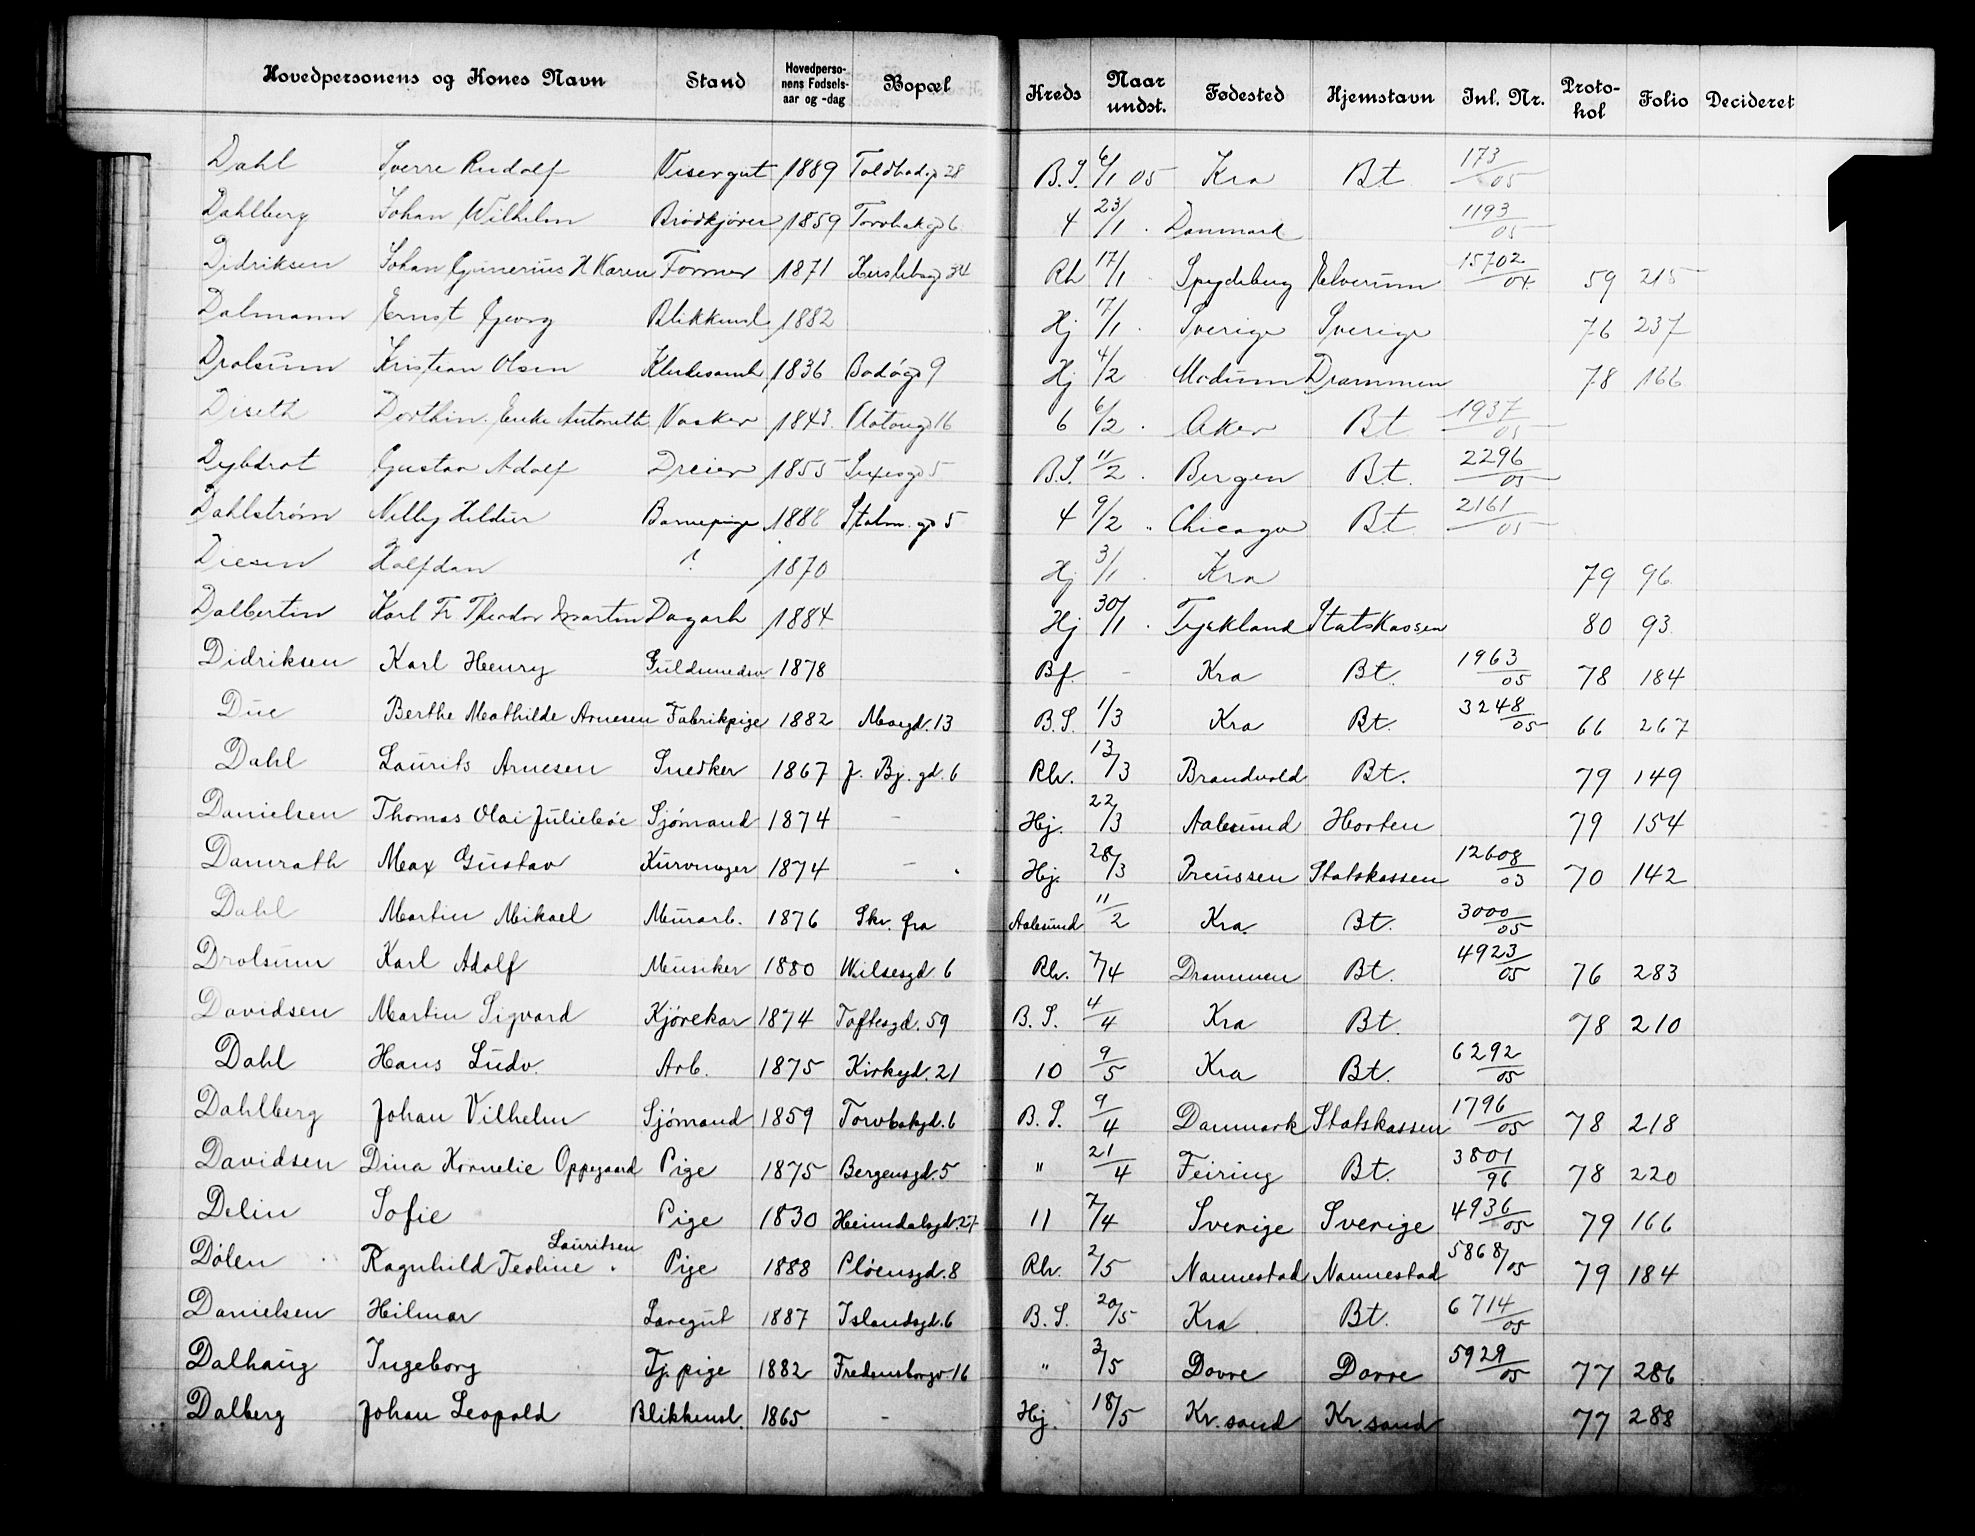 Hovedpersonens og Kones Navn Stand Hovedpersonens Fødselsaar og -dag Bopæl Kreds Naar undst. Fødested Hjemstavn Inl. Nr. Protokol Folio Decideret
Dahl Sverre Rudolf Visergut 1889 Toldbodg 28 B.S. 6/1 05 Kra Bt 173/05
Dahlberg Johan Wilhelm Brødkjører 1859 Torvbakgd 6 4 23/1 . Danmark 1193/05
Didriksen Johan Gunerius H Karen Former 1871 34 Rh 17/1 Spydeberg Elverum 15702/04 59 215
Dalmann Ernst Georg Blikkensl 1882 Hj 17/1 . Sverige Sverige 76 237
Drolsum Kristian Olsen 1836 Bodøgd 9 Hj 4/2 Modum Drammen 78 166
Diseth Dorthin. Enke Antonette Vasker 1843. 16 6 6/2 . Aker Bt 1937/05
Dybdrot Gustav Adolf Dreier 1855 5 B.S. 11/2 . Bergen Bt. 2296/05
Dahlström Nelly Hildur Barnepige 1888 Stolm. gd 5 4 9/2 " Chicago Bt 2161/05
Diesen Halfdan ? 1870 Hj 3/1 . Kra 79 96
Dalbertin Karl Fr Theodor Martin Dagarb 1884 Hj 30/1 . Tyskland Statskassen 80 93
Didriksen Karl Henry Guldsmedsv. 1878 Bf. - Kra Bt. 1963/05 78 184
Due Berthe Mathilde Arnesen Fabrikpige 1882 Mosgd. 13 B.S. 1/3 Kra Bt. 3248/05 66 267
Dahl Laurits Arnesen Snedker 1867 J. Bj. gd. 6 Rh. 13/3 Brandvold Bt. 79 149
Danielsen Thomas Olai Juliebøe Sjømand 1874 - Hj. 22/3 Aalesund Horten 79 154
Damrath Max Gustav Kurvmager 1874 - Hj. 28/3 Preussen Statskassen 12608/03 70 142
Dahl Martin Mikael Murarb. 1876 Skr. fra Aalesund 11/2 Kra. Bt. 3000/05
Drolsum Karl Adolf Musiker 1880 Wilsesgd. 6 Rh. 7/4 Drammen Bt. 4923/05 76 283
Davidsen Martin Sigvard Kjørekar 1874 Toftesgd. 59 B. S. 4/4 Kra Bt. 78 210
Dahl Hans Ludv. Arb. 1875 Kirkegd. 21 10 9/5 Kra Bt. 6292/05
Dahlberg Johan Vilhelm Sjømand 1859 Torvbakgd. 6 B. S. 9/4 Danmark Statskassen 1796/05 78 218
Davidsen Dina Kornelie Oppegaard Pige 1875 Bergensgd. 5 " 21/4 Feiring Bt. 3801/96 78 220
Delin Sofie Pige 1830 Heimdalsgd. 27 11 7/4 Sverige Sverige 4936/05 79 166
Dølen Ragnhild Teoline Lauritsen Pige 1888 Pløensgd. 8 Rh. 2/5 Nannestad Nannestad 5868/05 79 184
Danielsen Hilmar Laregut 1887 Islandsgd. 6 B. S. 20/5 Kra Bt. 6714/05
Dalhaug Ingeborg Tj. pige 1882 Fredensborgv. 16 " 3/5 Dovre Dovre 5929/05 77 286
Dalberg Johan Leopold Blikkensl. 1865 - Hj. 18/5 Kr. sand Kr. sand 77 288